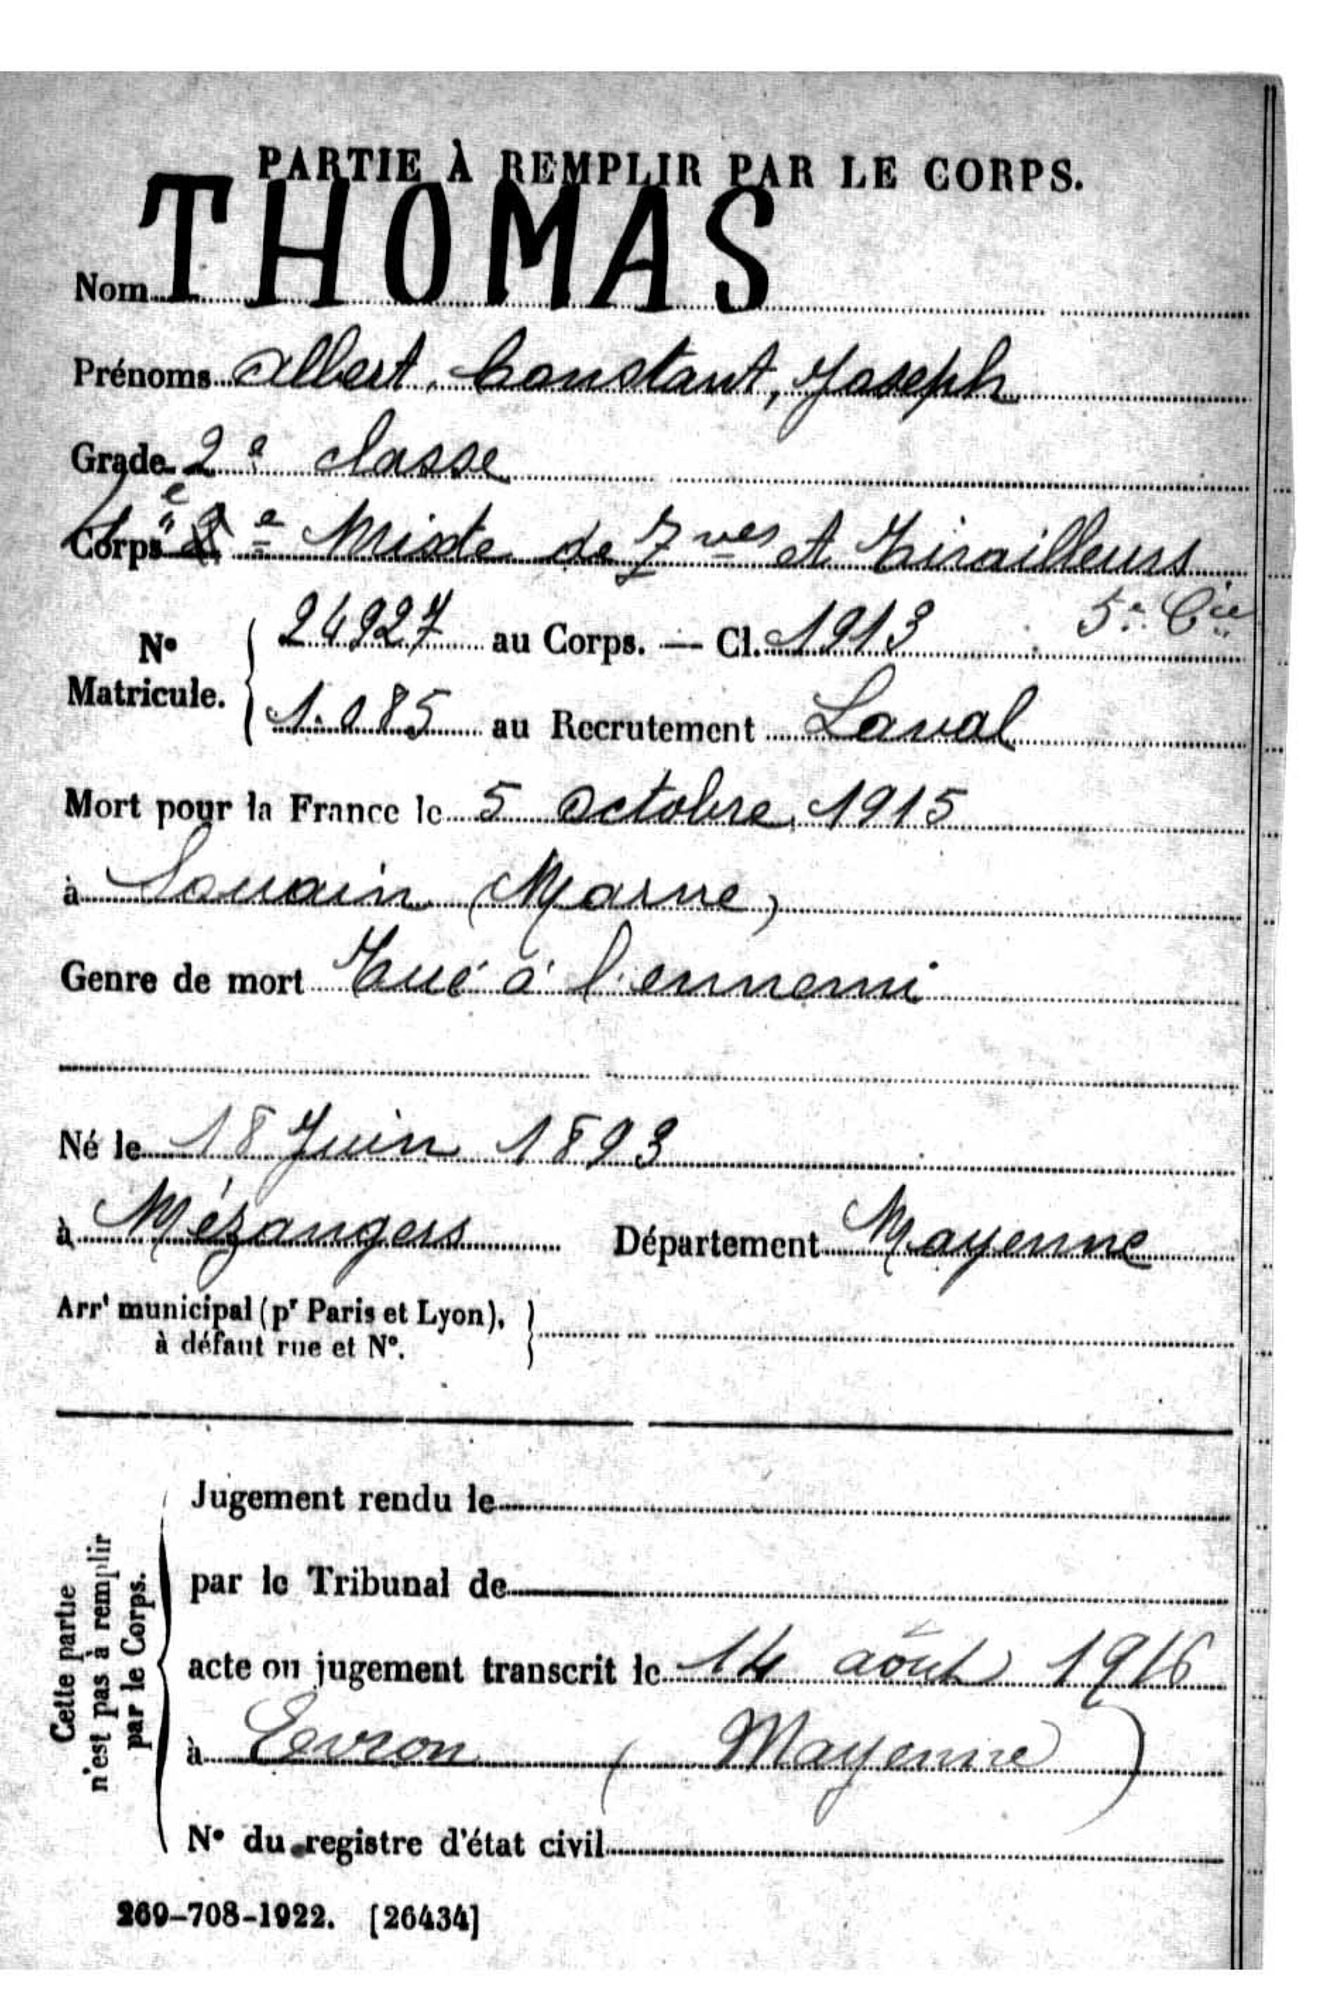 PARTIE À REMPLIR PAR LE CORPS.
Nom THOMAS
Prénoms Albert, Constant, Joseph
Grade 2e classe
Corps e Mixte de Zves et Tirailleurs
5e Cie
No Matricule. 24927 au Corps. — Cl. 1913
1.185 au Recrutement Laval
Mort pour la France le 5 Octobre 1915
à Souain (Marne)
Genre de mort Tué à l'ennemi
Né le 18 Juin 1893
à Mézangers Département Mayenne
Arrt municipal (pr Paris et Lyon),
à défaut rue et No.
Cette partie
n'est pas à remplir
par le Corps.
Jugement rendu le
par le Tribunal de
acte ou jugement transcrit le 14 août 1916
à Evron (Mayenne)
No du registre d'état civil
269-708-1922. [26434]